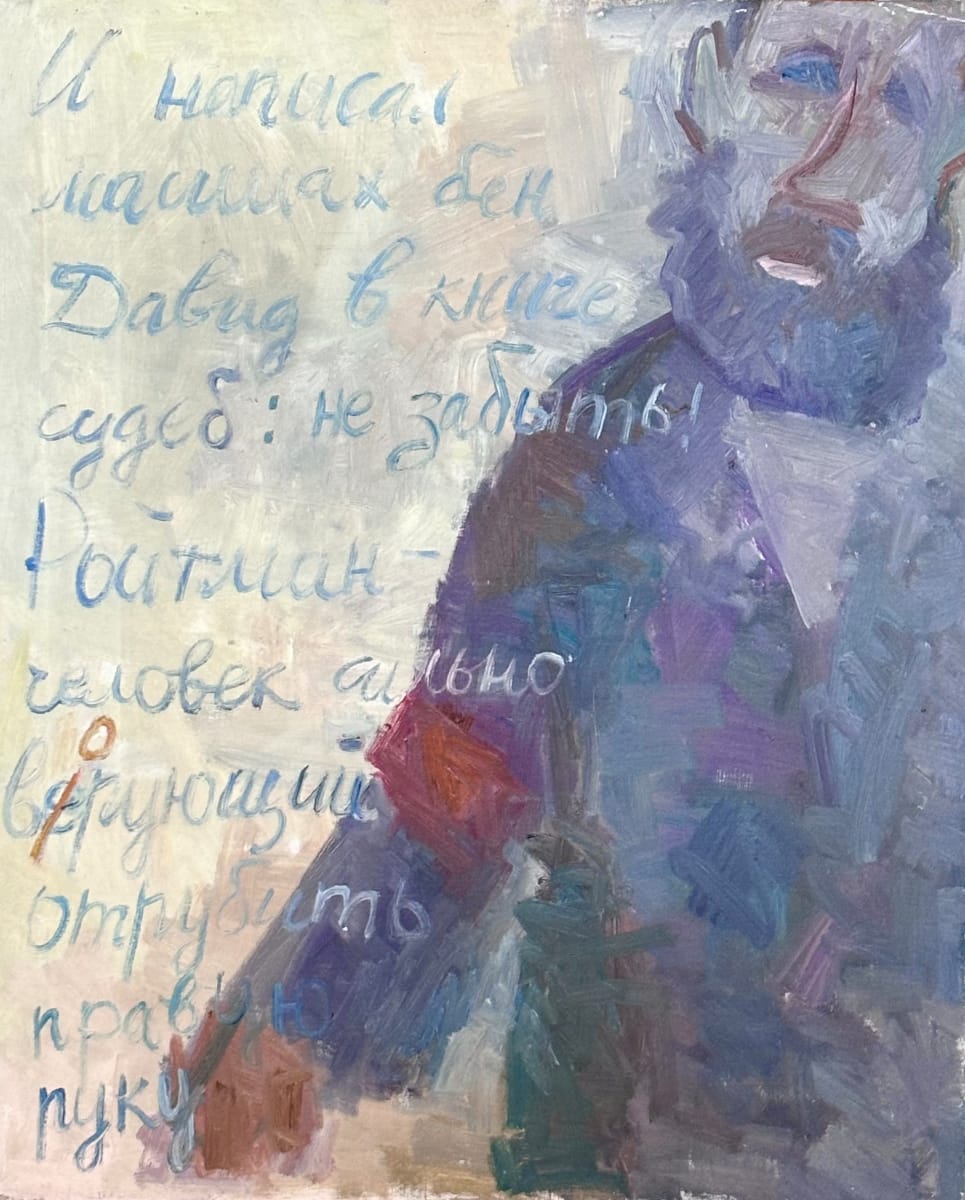 И написал
машиах бен
Давид в книге
судеб: не забыть!
Ройтман -
человек сильно
верующий
отрубить
правую
руку